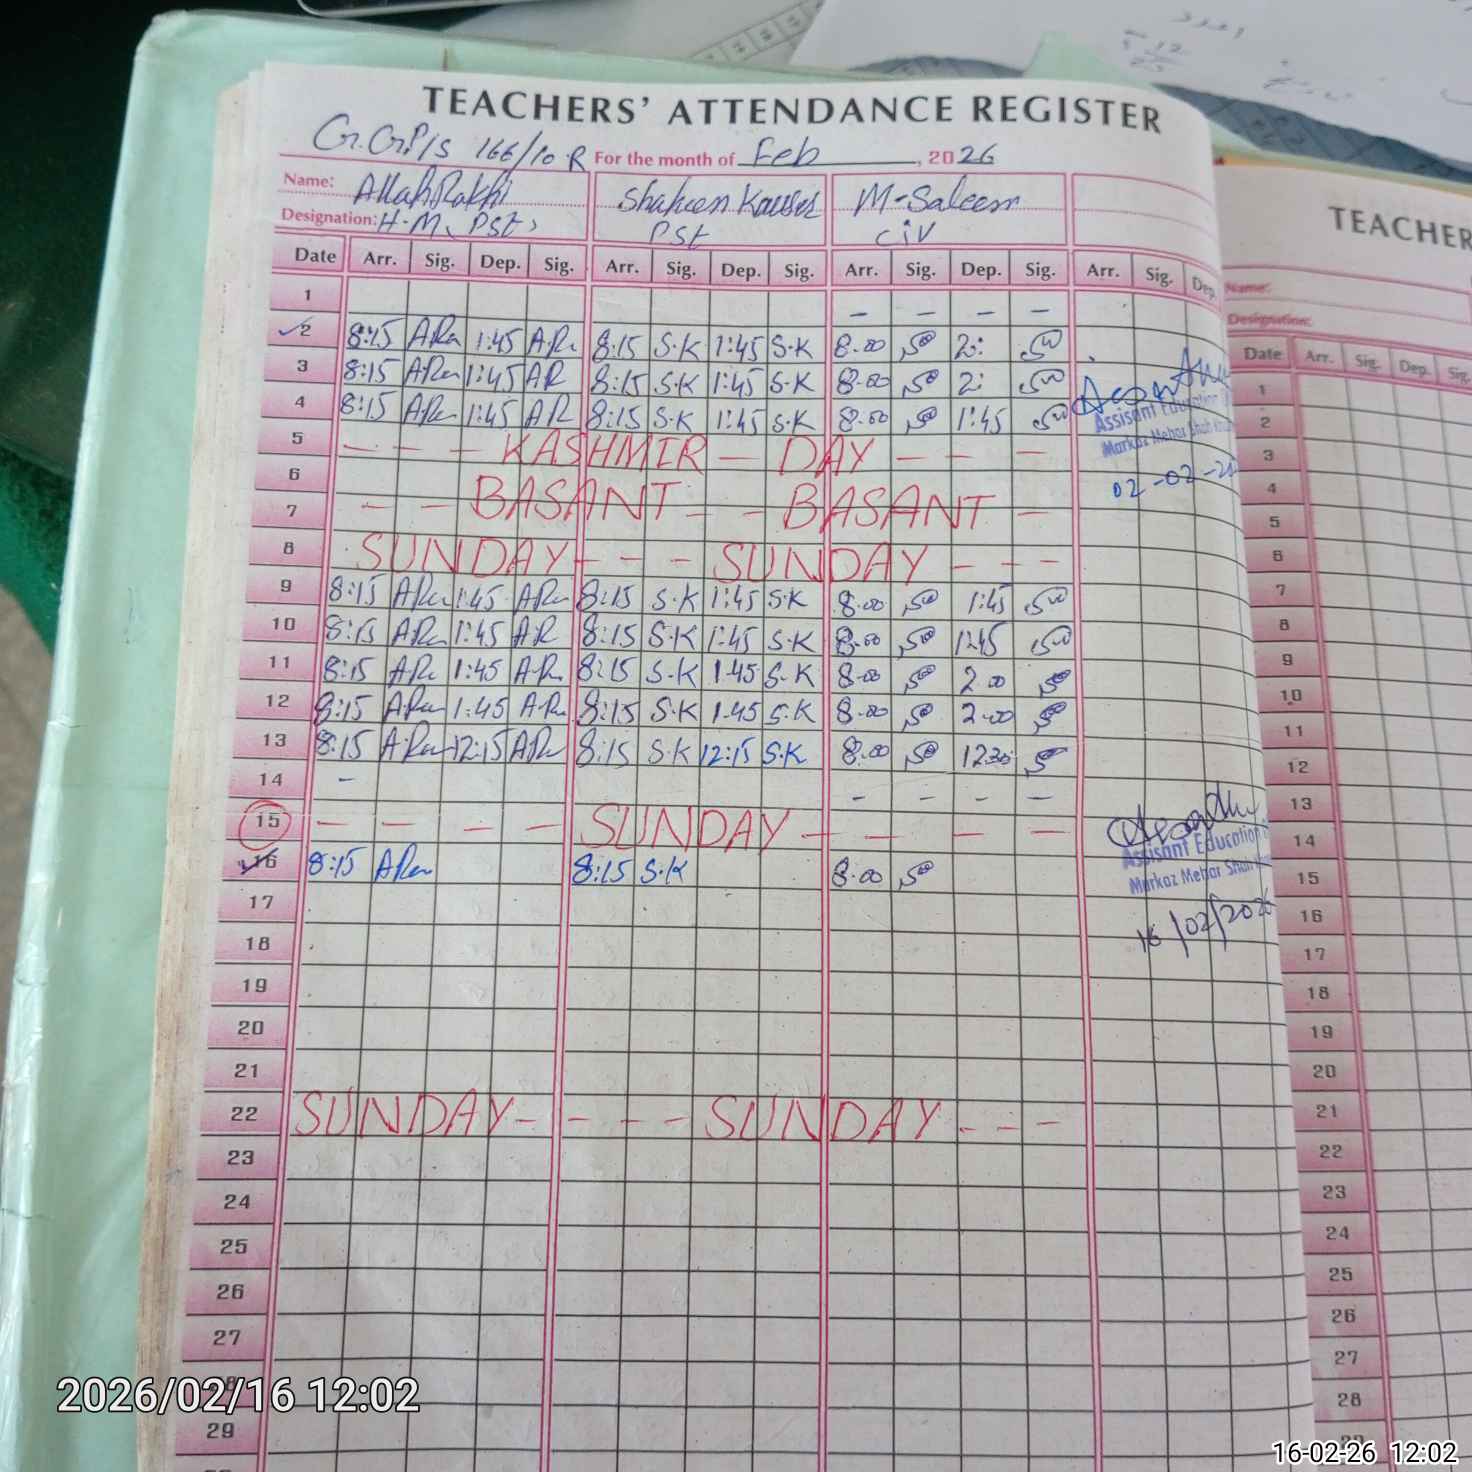 TEACHERS' ATTENDANCE REGISTER
G.GP/S 166/10 R For the month of Feb, 2026
Name: Allah Rakhi Shaheen Kauser M-Saleem
Designation: H-M, PST, PST CiV
Date Arr. Sig. Dep. Sig. Arr. Sig. Dep. Sig. Arr. Sig. Dep. Sig. Arr. Sig. Dep.
1 – – – –
2 8:15 ARa 1:45 ARa 8:15 S.K 1:45 S.K 8.00 2:
3 8:15 ARa 1:45 AR 8:15 S.K 1:45 S.K 8.00 2:
4 8:15 ARa 1:45 AR 8:15 S.K 1:45 S.K 8.00 1:45
5 – – – KASHMIR – DAY – – –
6
7 – – BASANT – – BASANT –
8 SUNDAY – – – SUNDAY – – –
9 8:15 ARa 1:45 ARa 8:15 S.K 1:45 S.K 8.00 1:45
10 8:15 ARa 1:45 AR 8:15 S.K 1:45 S.K 8.00 1:45
11 8:15 ARa 1:45 ARa 8:15 S.K 1.45 S.K 8.00 2.00
12 8:15 ARa 1:45 ARa 8:15 S.K 1.45 S.K 8.00 2.00
13 8:15 ARa 12:15 ARa 8:15 S.K 12:15 S.K 8.00 12.30
14 – – – – –
15 – – – – SUNDAY – – – – –
16 8:15 ARa 8:15 S.K 8.00
17
18
19
20
21
22 SUNDAY – – – – SUNDAY – – –
23
24
25
26
27
8
29
Assisant Education
Markaz Mehar Shah
02-02-2
Assisant Education
Markaz Mehar Shah
16/02/2026
TEACHER
Name:
Designation:
Date Arr. Sig. Dep. Sig.
1
2
3
4
5
6
7
8
9
10
11
12
13
14
15
16
17
18
19
20
21
22
23
24
25
26
27
28
2026/02/16 12:02
16-02-26 12:02